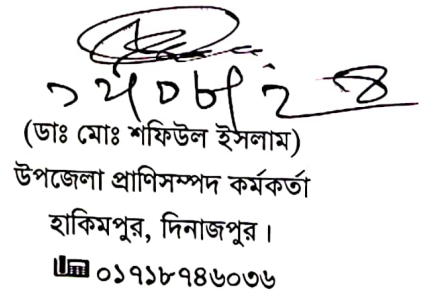 (ডাঃ মোঃ শফিউল ইসলাম)
উপজেলা প্রাণিসম্পদ কর্মকর্তা
হাকিমপুর, দিনাজপুর।
০১৭১৮৭৪৬০৩৬